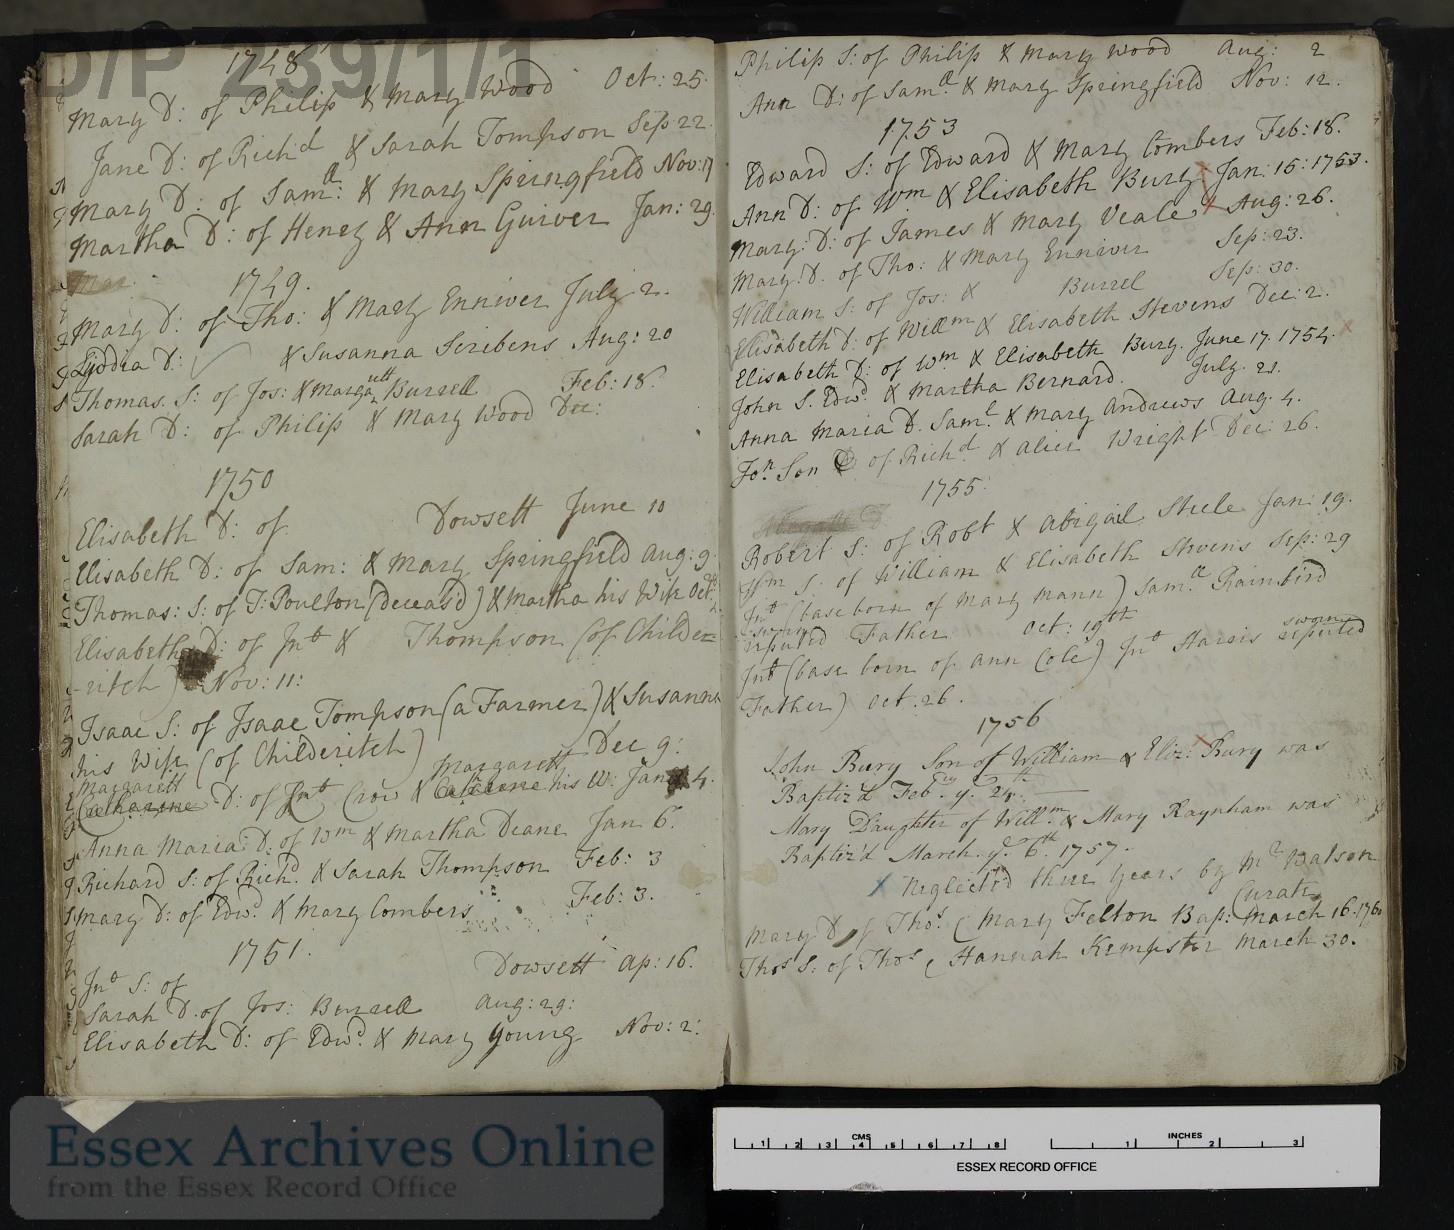 D/P 239/1/1
1748
Mary D: of Philip & Mary Wood Oct: 25.
Jane D: of Richd & Sarah Tompson Sep: 22.
Mary D: of Samll: & Mary Springfield Nov: 17
Martha D: of Henry & Ann Guiver Jan: 29.
Mar
1749.
Mary D: of Tho: & Mary Enniver July 2.
Lyddia D: & Susanna Scribens Aug: 20
Thomas. S: of Jos: & Margarett Burrell Feb: 18.
Sarah D: of Philip & Mary Wood Dec:
1750
Elisabeth D: of Dowsett June 10
Elisabeth D: of Sam: & Mary Springfield Aug: 9
Thomas: S: of T: Poulton (deceas'd) & Martha his Wife Oct:
Elisabeth D: of Jno & Thompson (of Childer=
-ritch) Nov: 11:
Isaac S: of Isaac Tompson (a Farmer) & Susanna
his Wife (of Childeritch) Dec 9:
Margarett Margarett
Catharine D: of Jno Crow & Catharine his W. Jan 4.
Anna Maria D: of Wm & Martha Deane Jan 6.
Richard S: of Richd. & Sarah Thompson Feb: 3
Mary D: of Edwd & Mary Combers Feb: 3.
1751.
Jno S: of Dowsett Ap: 16.
Sarah D. of Jos: Burrell Aug: 29:
Elisabeth D: of Edwd. & Mary Young Nov: 2:
Philip S: of Philip & Mary Wood Aug: 2
Ann D: of Samll & Mary Springfield Nov: 12.
1753
Edward S: of Edward & Mary Combers Feb: 18.
Ann D: of Wm & Elisabeth Bury Jan: 15: 1753.
Mary: D: of James & Mary Veale Aug: 26.
Mary: D. of Tho: & Mary Enniver Sep: 23.
William S: of Jos: & Burrel Sep: 30.
Elisabeth D: of Willm & Elisabeth Stevens Dec: 2.
Elisabeth D: of Wm & Elisabeth Bury. June 17. 1754. x
John S. Edwd. & Martha Bernard. July. 21.
Anna Maria D. Saml. & Mary Andrews Aug. 4.
Jon Son of Richd & Alice Wright Dec: 26.
1755.
Robert S: of Robt & Abigail Steele Jan: 19.
Wm S: of William & Elisabeth Stevens Sep: 29
Jno (base born of Mary Mann) Samll Rainbird
sworn
reputed Father Oct: 19th
sworn
Jno (base born of Ann Cole) Jno Harris reputed
Father) Oct. 26.
1756
John Bury Son of William & Eliz: Bury was
Baptiz'd Feb.ry y. 24th
Mary Daughter of Willm. & Mary Raynham was
Baptiz'd March. ye 6th. 1757.
x Neglected three years by Mr Watson
Curate
Mary D of Thos. ( Mary Felton Bap: March 16. 1760
Thos S: of Thos ( Hannah Kempster March 30.
Essex Archives Online
from the Essex Record Office
CMS
1 2 3 4 5 6 7 8
INCHES
1 2 3
ESSEX RECORD OFFICE